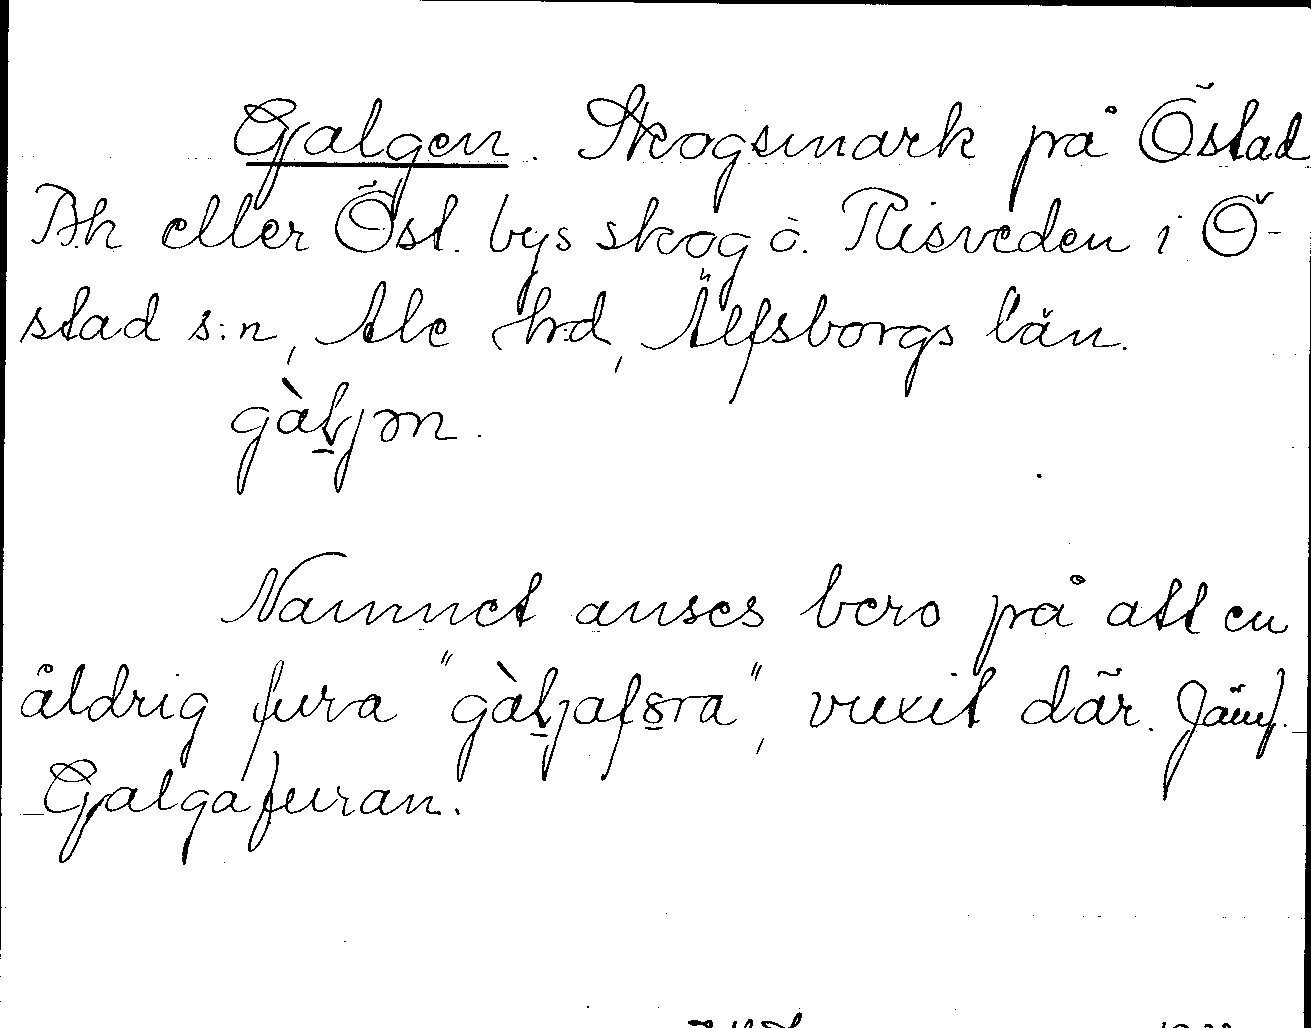 Galgen. Skogsmark på Östad
Bh eller Öst. bys skog å Risveden i Ö-
stad s:n, Ale hrd, Älfsborgs län.
gàłjən.
Namnet anses bero på att en
åldrig fura "gàłjafꞩra", vuxit där. Jämf.
Galgafuran.